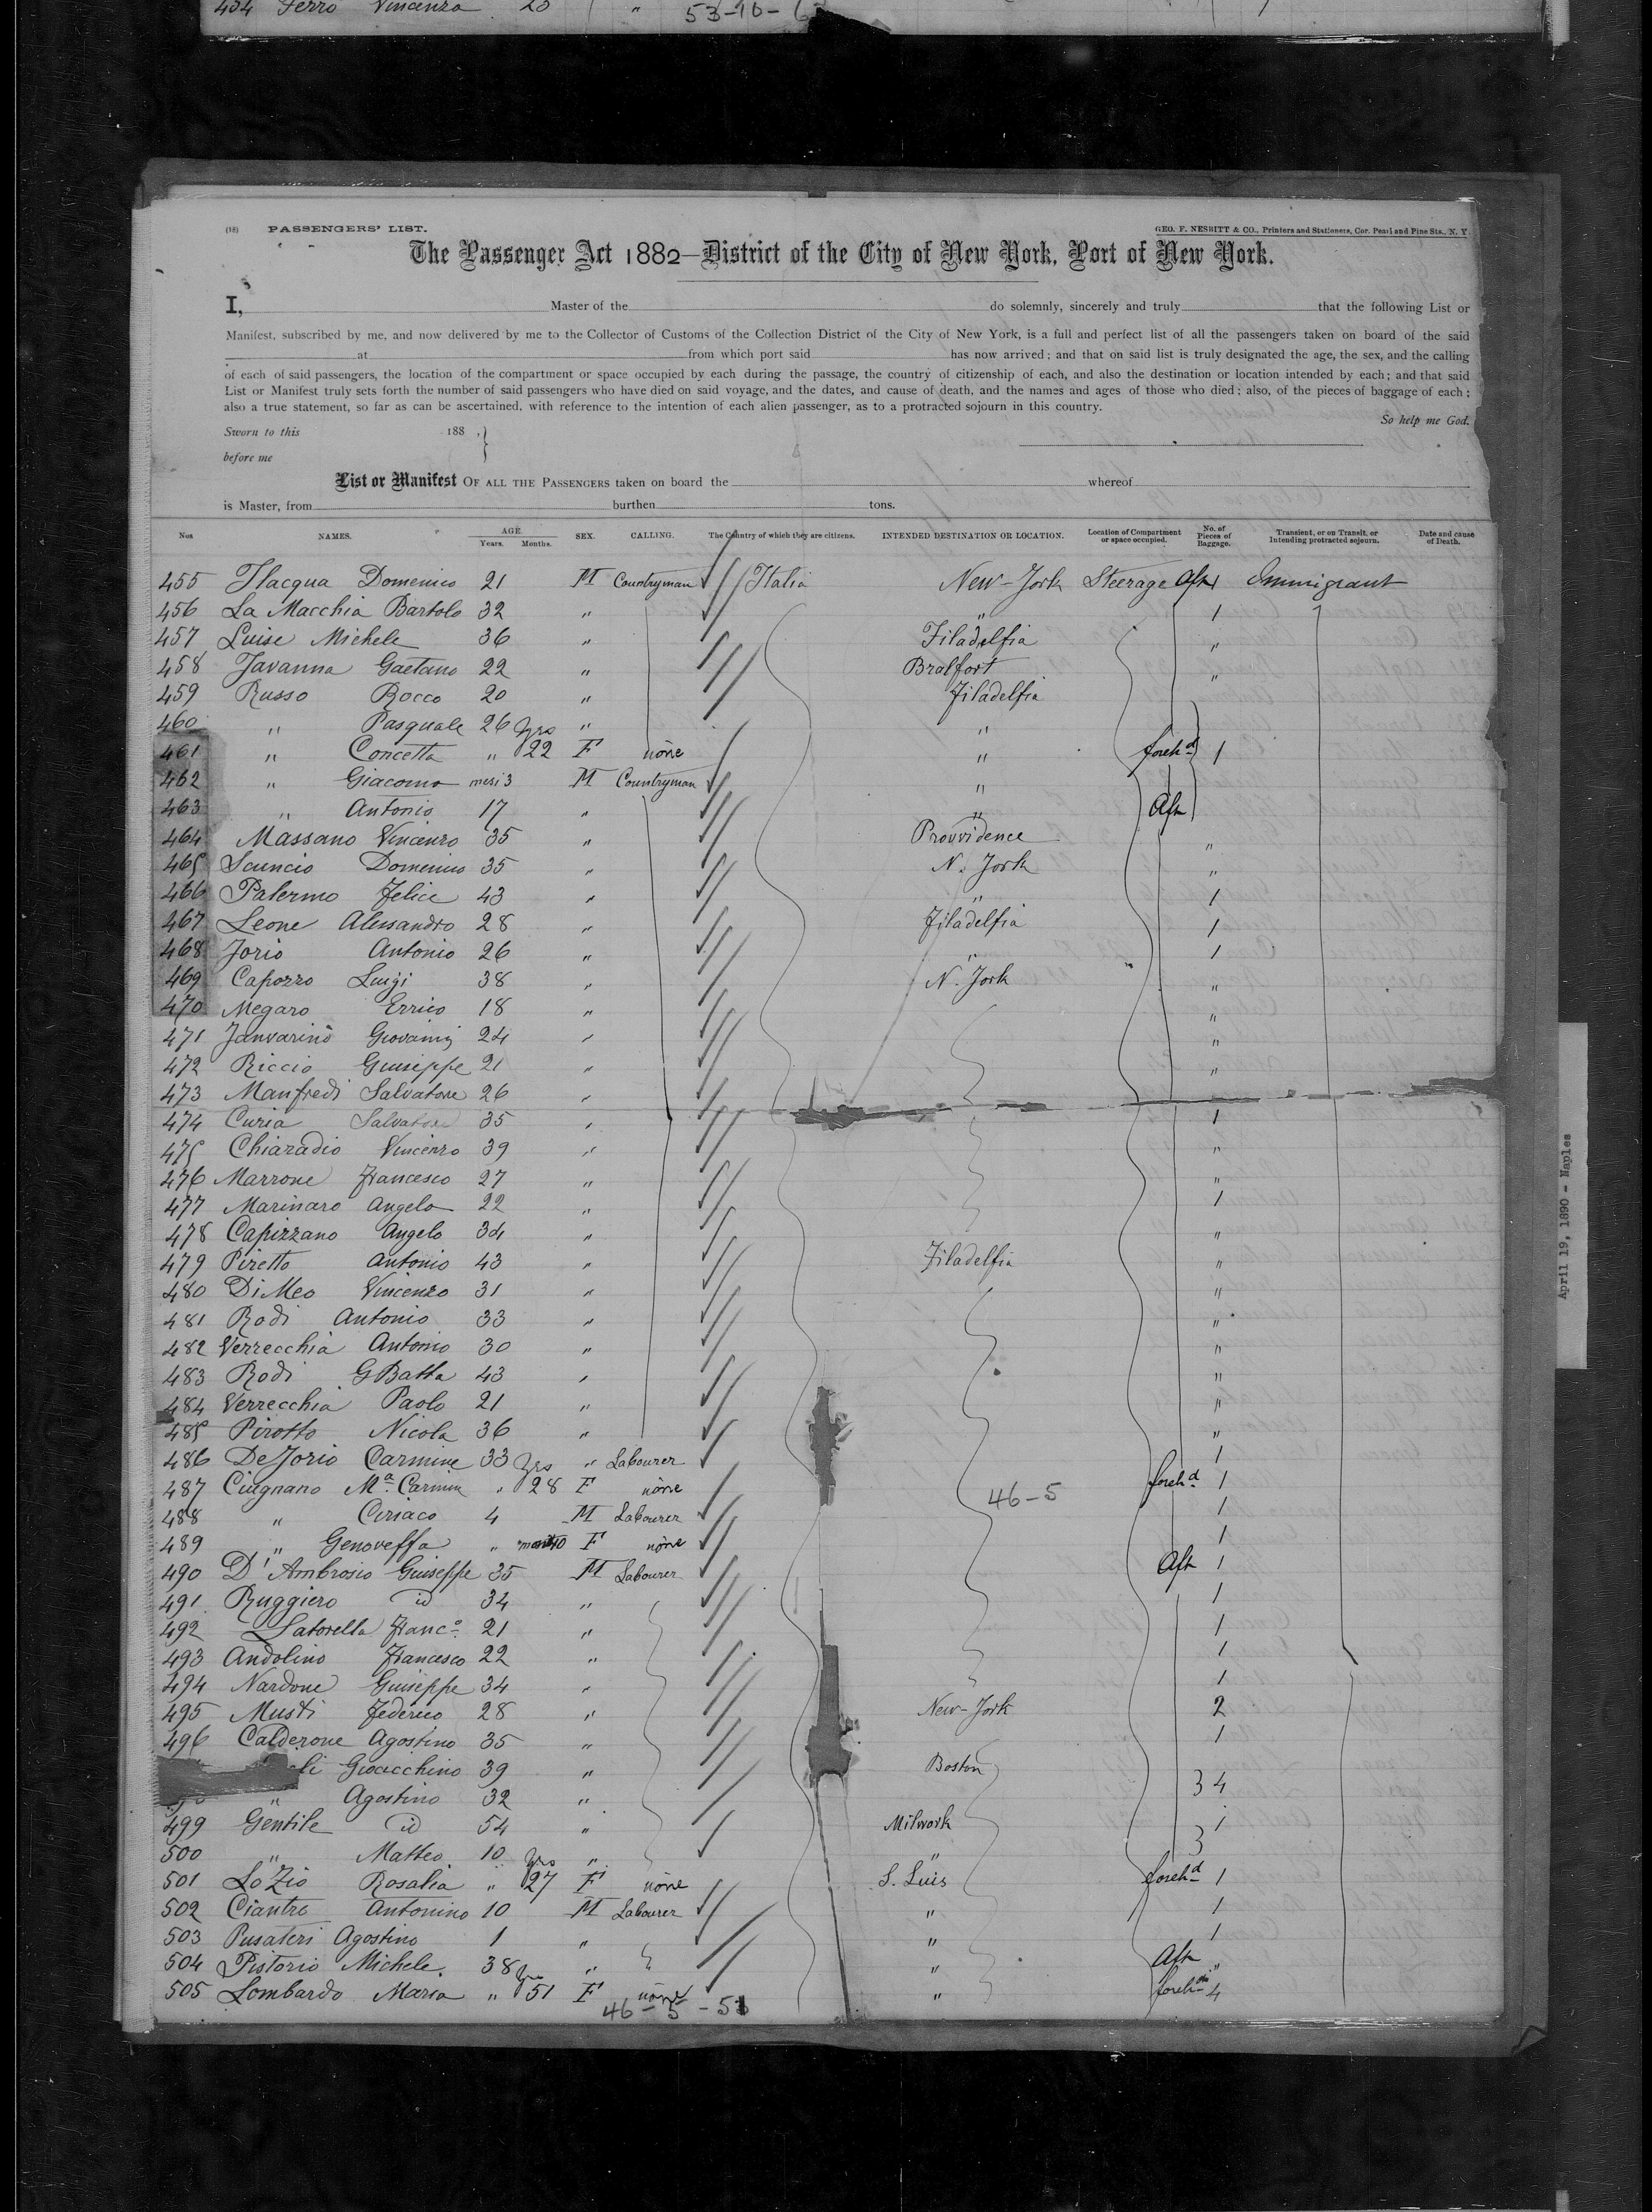 454 Ferro Vincenza 23 "
53-10-
(18) PASSENGERS' LIST. GEO. F. NESBITT & CO., Printers and Stationers, Cor. Pearl and Pine Sts., N. Y.
The Passenger Act 1882—District of the City of New York, Port of New York.
I, Master of the do solemnly, sincerely and truly that the following List or
Manifest, subscribed by me, and now delivered by me to the Collector of Customs of the Collection District of the City of New York, is a full and perfect list of all the passengers taken on board of the said
at from which port said has now arrived; and that on said list is truly designated the age, the sex, and the calling
of each of said passengers, the location of the compartment or space occupied by each during the passage, the country of citizenship of each, and also the destination or location intended by each; and that said
List or Manifest truly sets forth the number of said passengers who have died on said voyage, and the dates, and cause of death, and the names and ages of those who died; also, of the pieces of baggage of each;
also a true statement, so far as can be ascertained, with reference to the intention of each alien passenger, as to a protracted sojourn in this country.
So help me God.
Sworn to this 188 ,
before me
List or Manifest OF ALL THE PASSENGERS taken on board the whereof
is Master, from burthen tons.
Nos NAMES. AGE. Years. Months. SEX. CALLING. The Country of which they are citizens. INTENDED DESTINATION OR LOCATION. Location of Compartment or space occupied. No. of Pieces of Baggage. Transient, or on Transit, or Intending protracted sojourn. Date and cause of Death.
455 Ilacqua Domenico 21 M Countryman Italia New-York Steerage Aft 1 Immigrant
456 La Macchia Bartolo 32 " " 1
457 Luise Michele 36 " Filadelfia "
458 Javanna Gaetano 22 " Bralfort "
459 Russo Rocco 20 " Filadelfia
460 " Pasquale 26 yrs " "
461 " Concetta " 22 F none " foreh d 1
462 " Giacomo mesi 3 M Countryman "
463 " Antonio 17 " " Aft
464 Massano Vincenzo 35 " Prouvidence "
465 Scuncio Domenico 35 " N. York "
466 Palermo Felice 43 " " 1
467 Leone Alessandro 28 " Filadelfia 1
468 Jorio Antonio 26 " " 1
469 Capozzo Luigi 38 " N. York "
470 Megaro Errico 18 " "
471 Janvarino Giovanni 24 " "
472 Riccio Giuseppe 21 " "
473 Manfredi Salvatore 26 "
474 Curia Salvatore 35 " 1
475 Chiaradio Vincenzo 39 " "
476 Marrone Francesco 27 " "
477 Marinaro Angelo 22 " 1
478 Capizzano Angelo 34 " "
479 Piretto Antonio 43 " Filadelfia "
480 DiMeo Vincenzo 31 " "
481 Rodi Antonio 33 " "
482 Verrecchia Antonio 30 " "
483 Rodi GBatta 43 " "
484 Verrecchia Paolo 21 " "
485 Pirotto Nicola 36 " "
486 DeJorio Carmine 33 yrs " Labourer 1
487 Ciugnano Ma. Carmin " 28 F none 46-5 foreh d 1
488 " Ciriaco 4 M Labourer 1
489 " Genoveffa " 10 F none 1
490 D'Ambrosio Giuseppe 35 M Labourer Aft 1
491 Ruggiero id 34 " 1
492 Latorella Franco. 21 " 1
493 Andolino Francesco 22 " 1
494 Nardone Giuseppe 34 " 1
495 Musti Federico 28 " New-York 2
496 Calderone Agostino 35 " 1
li Gioacchino 39 " Boston
" Agostino 32 " 3 4
499 Gentile id 54 " Milwork 1
500 " Matteo 10 yrs " " 3
501 LoZio Rosalia " 27 F none S. Luis foreh d 1
502 Ciantro Antonino 10 M Labourer " 1
503 Pusateri Agostino 1 " " 1
504 Pistorio Michele. 38 yrs " " Aft "
505 Lombardo Maria " 51 F none " foreh 4
46-5-51
April 19, 1890 - Naples